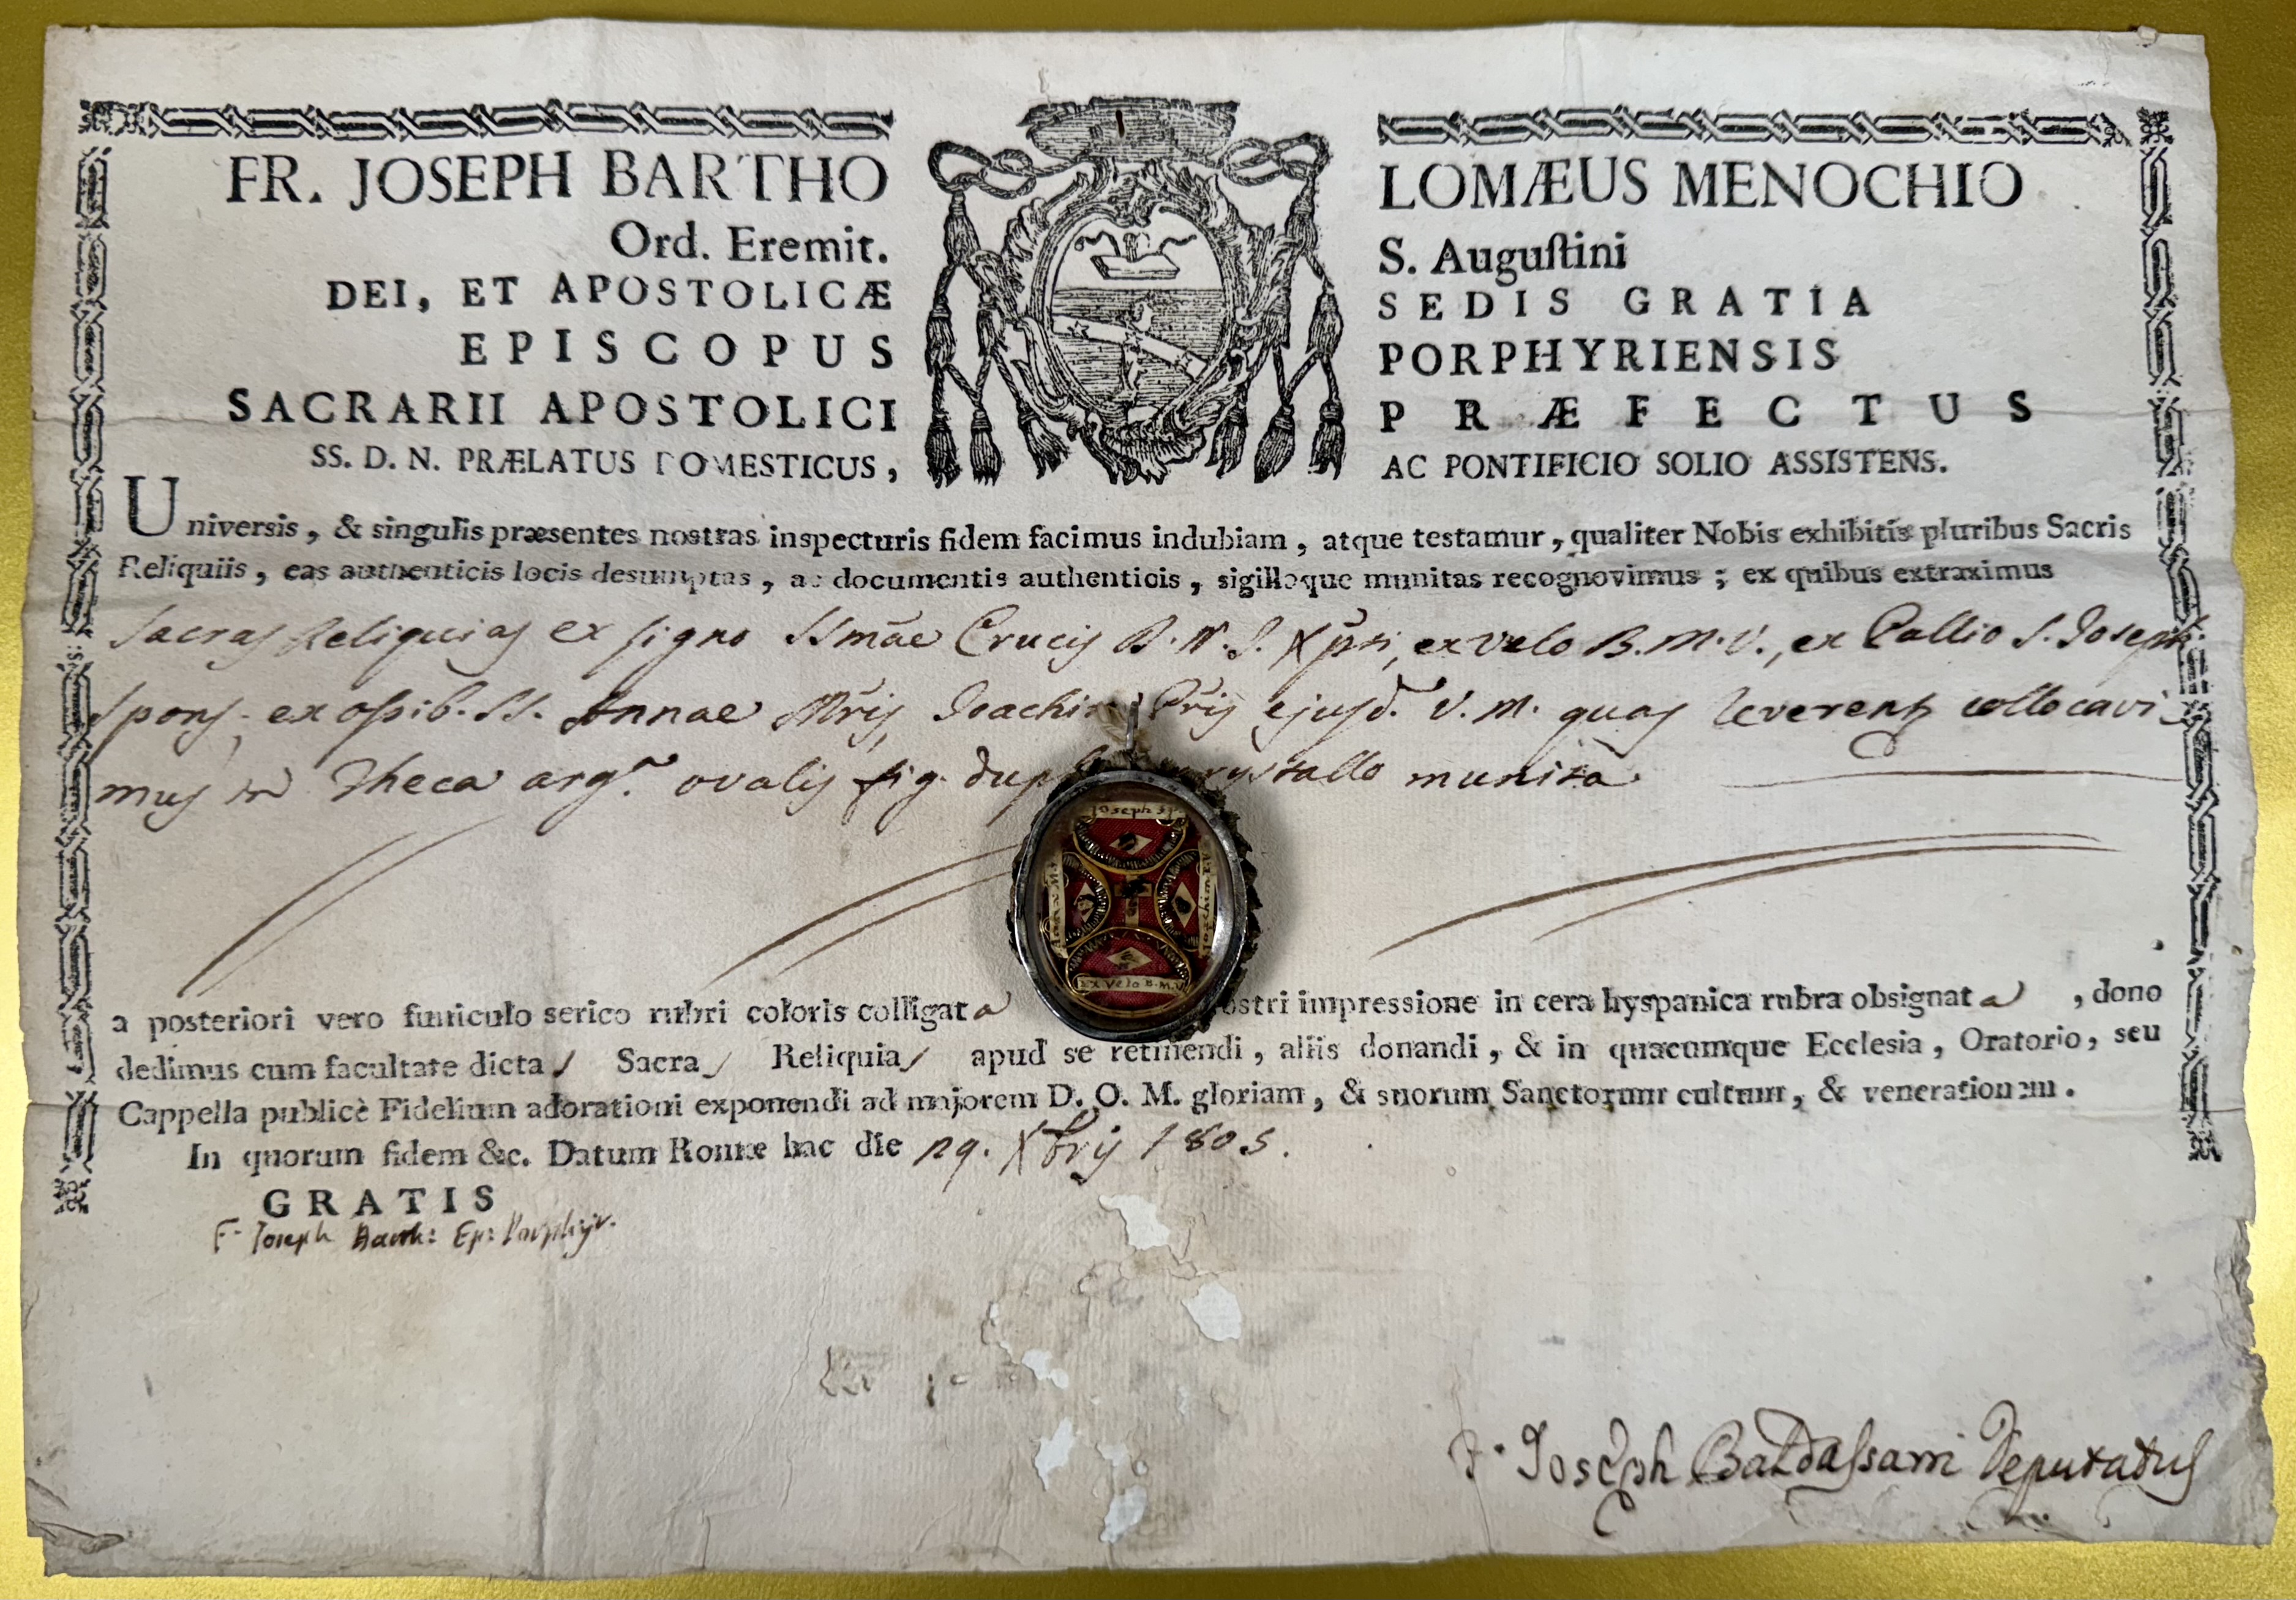 FR. JOSEPH BARTHO LOMÆUS MENOCHIO
Ord. Eremit. S. Auguſtini
DEI, ET APOSTOLICÆ SEDIS GRATIA
EPISCOPUS PORPHYRIENSIS
SACRARII APOSTOLICI PRÆFECTUS
SS. D. N. PRÆLATUS DOMESTICUS, AC PONTIFICIO SOLIO ASSISTENS.
Universis, & singulis præsentes nostras inspecturis fidem facimus indubiam, atque testamur, qualiter Nobis exhibitis pluribus Sacris
Reliquiis, eas authenticis locis desumptas, ac documentis authenticis, sigilloque munitas recognovimus; ex quibus extraximus
Sacras Reliquias ex signo SSmae Crucis D.N.J. Xpti, ex velo B.M.V., ex Pallio S. Joseph
Spons. ex ossib. SS. Annae Mris, Joachim Pris ejusd. V.M. quas reverent collocavi
mus in Theca arg. ovalis fig. dupl crystallo munita
Joseph S
Anna M.
Joachim
ex Velo B.M.V
a posteriori vero funiculo serico rubri coloris colligata ostri impressione in cera hyspanica rubra obsignata, dono
dedimus cum facultate dictas Sacras Reliquias apud se retinendi, aliis donandi, & in quacumque Ecclesia, Oratorio, seu
Cappella publicè Fidelium adorationi exponendi ad majorem D. O. M. gloriam, & suorum Sanctorum cultum, & venerationem.
In quorum fidem &c. Datum Romæ hac die 29. Xbris 1805.
GRATIS
F. Joseph Barth: Ep: Porphyr.
F. Joseph Baldassarri Deputatus